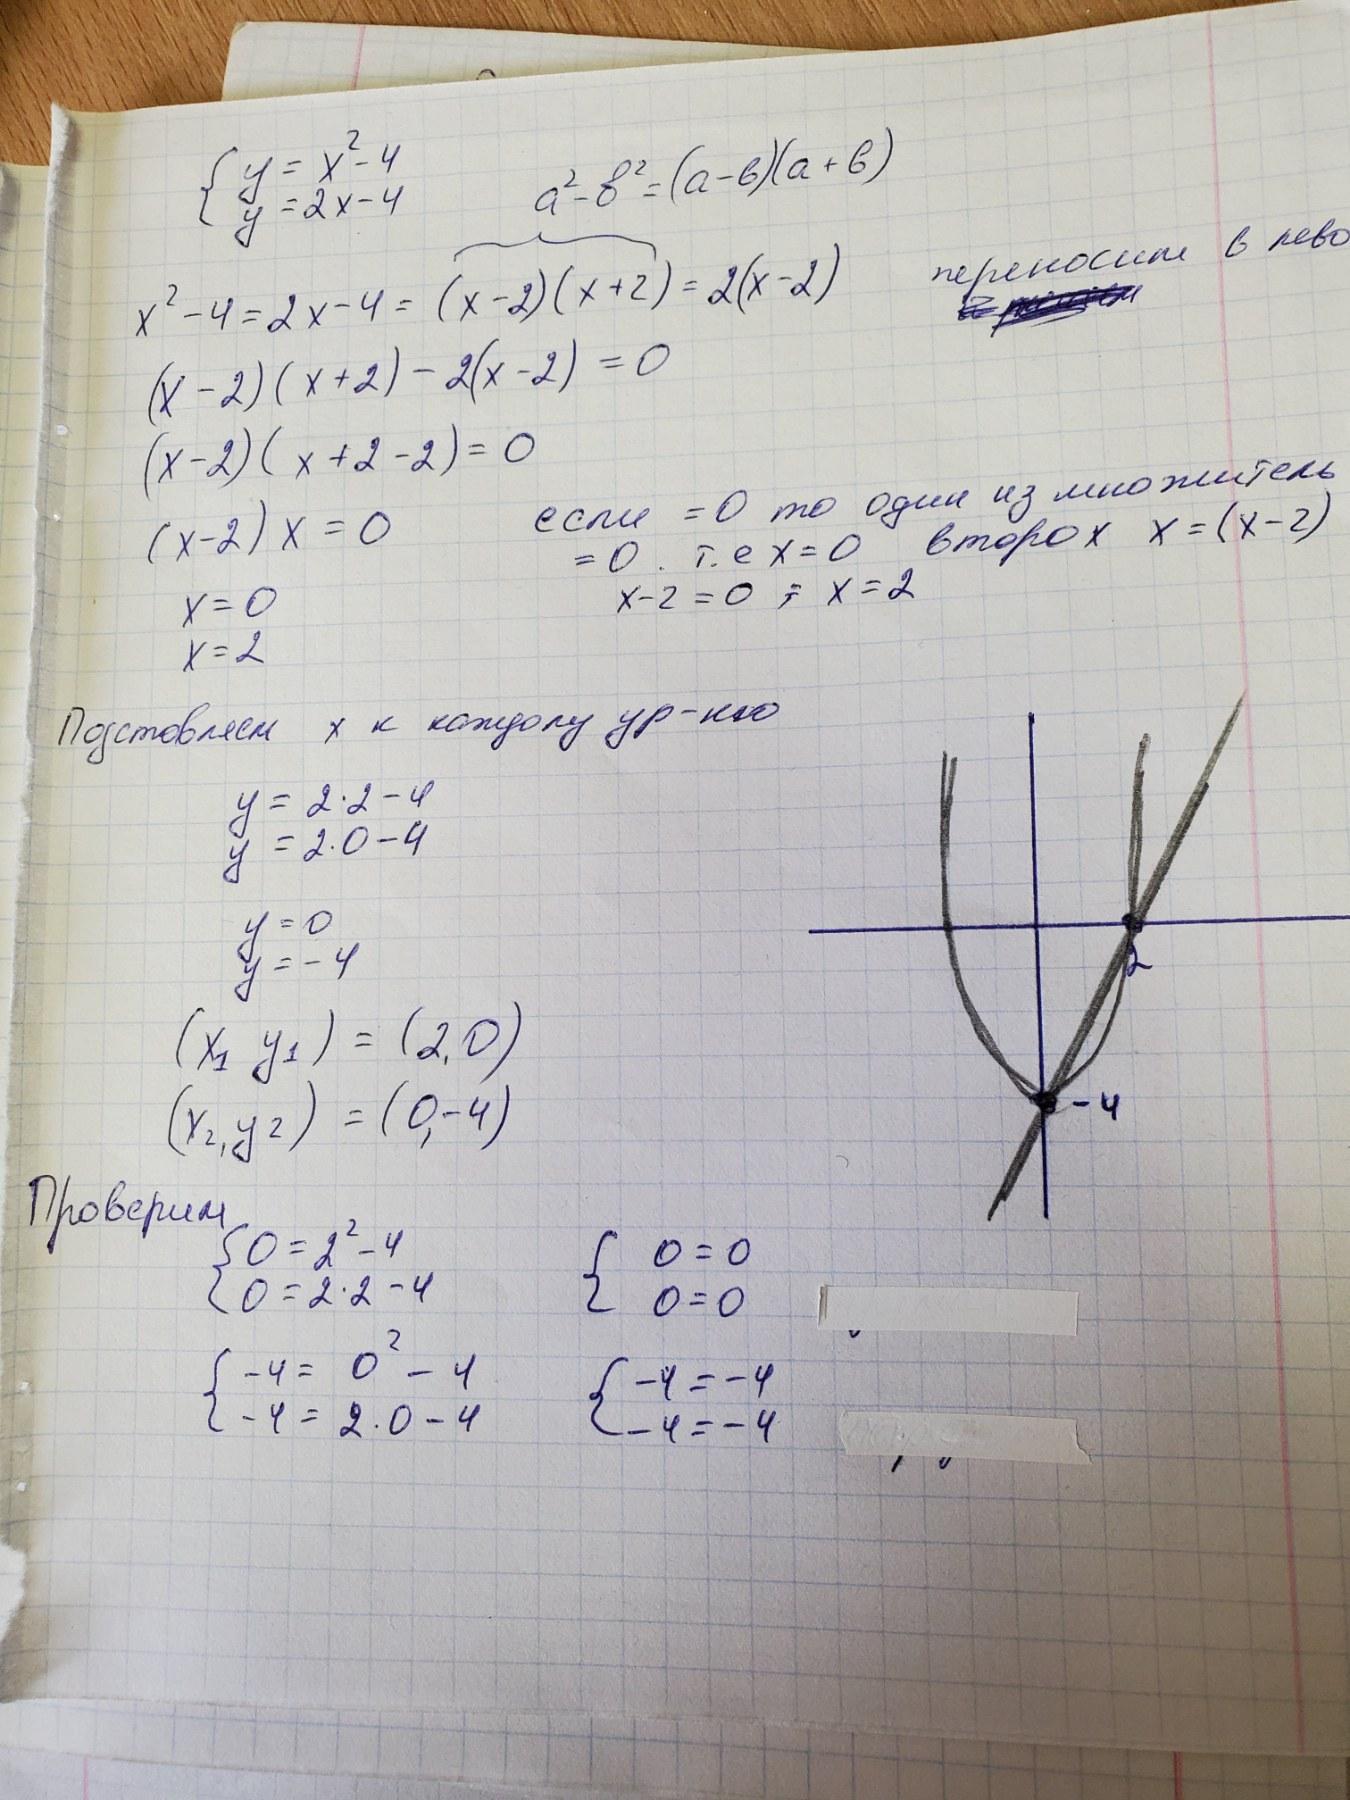 { y = x² - 4
y = 2x - 4
a² - в² = (а - в)(а + в)
x² - 4 = 2x - 4 = (x - 2)(x + 2) = 2(x - 2)
переносим в лево
(x - 2)(x + 2) - 2(x - 2) = 0
(x - 2)(x + 2 - 2) = 0
(x - 2) x = 0
если = 0 то один из множитель
= 0. т.е x = 0 второх x = (x - 2)
x - 2 = 0 = x = 2
x = 0
x = 2
Подставляем x к каждому ур-нию
y = 2·2 - 4
y = 2·0 - 4
y = 0
y = -4
2
-4
(x₁ y₁) = (2, 0)
(x₂, y₂) = (0, -4)
Проверим
{ 0 = 2² - 4
0 = 2·2 - 4
{ 0 = 0
0 = 0
{ -4 = 0² - 4
-4 = 2·0 - 4
{ -4 = -4
-4 = -4